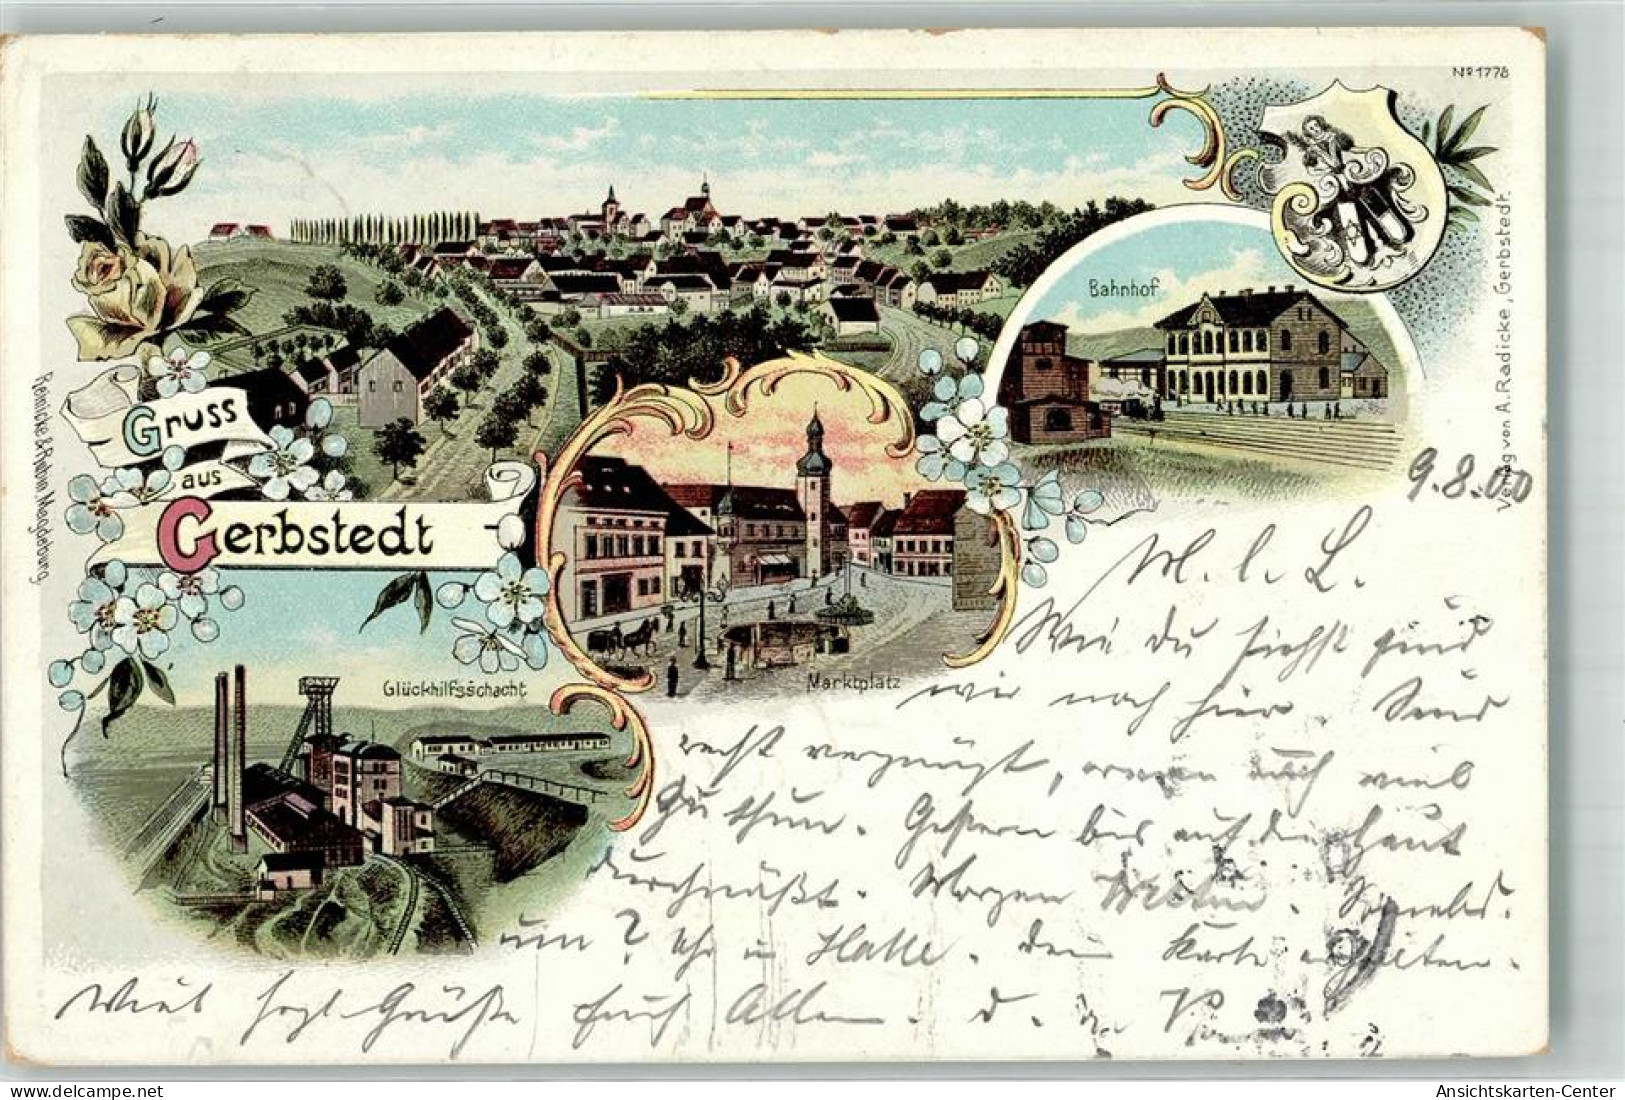 No 1778
Verlag von A. Radicke, Gerbstedt.
Reinicke & Rubin, Magdeburg.
Bahnhof
Gruss
aus
Gerbstedt
Marktplatz
Glückhilfsschacht
9.8.00
M. l. L.
Wie Du siehst sind
wir noch hier. Sind
recht vergnügt, auch viel
zu thun. Gestern bis auf die Haut
durchnäßt. Morgen
um 7 Uhr in Halle. Dein Karte erhalten.
Viel herzl. Grüße Euch Allen. d.
delcampe.net
Ansichtskarten-Center